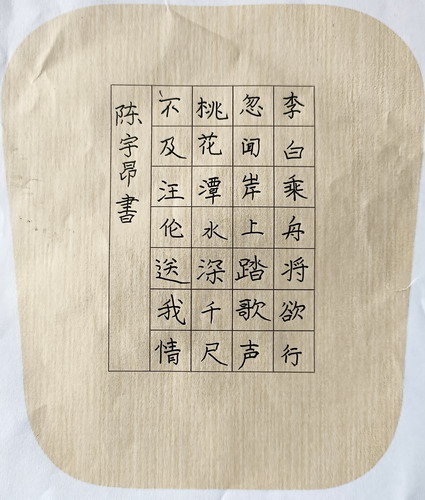 李白乘舟将欲行
忽闻岸上踏歌声
桃花潭水深千尺
不及汪伦送我情
陈宇昂書